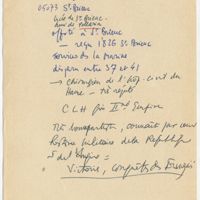 05073 St Brieuc
Lycée de St Brieuc
offert à St Brieuc
— reçu 1826 St Brieuc
Services de la marine
disparu entre 37 et 41
→ Chirurgien de l'hôp. civil du
Havre — très
C L H par IInd Empire
Très bonapartiste, connait par cœur
histoire militaire de la République
& de l'Empire =
Victoires, conquêtes des Français